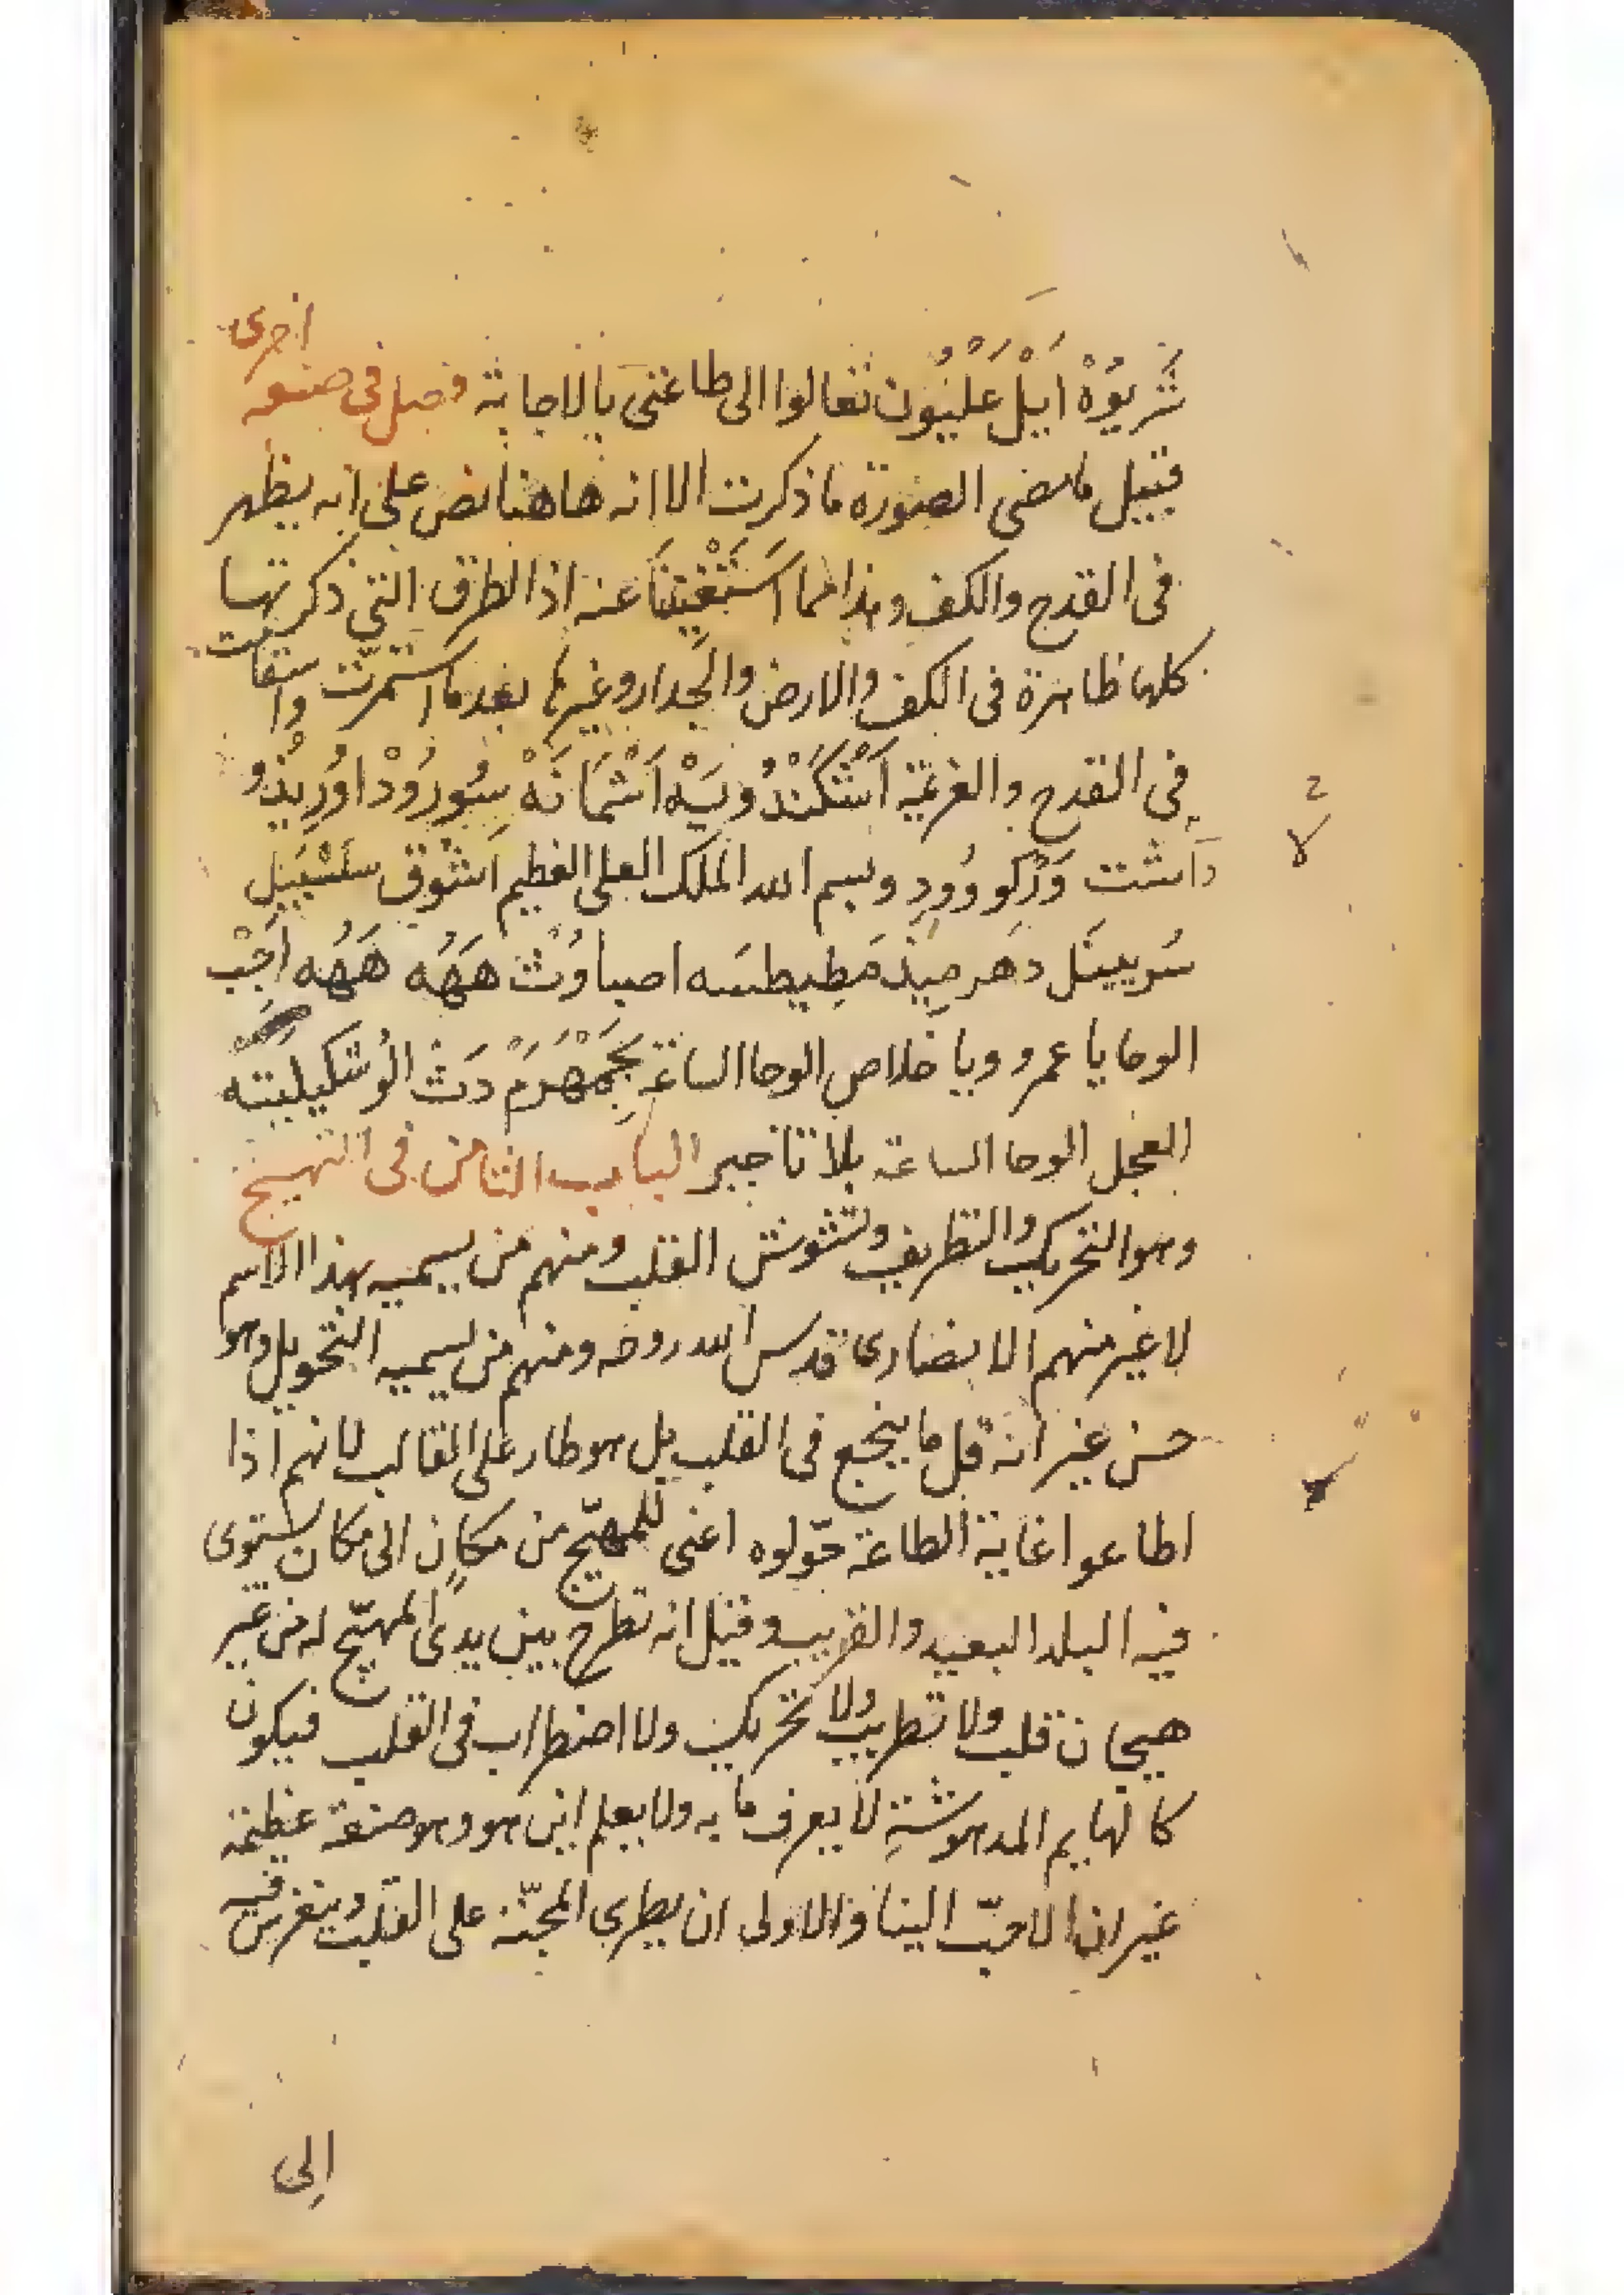 اخرى
شَرِيُوْهْ اَيِيْل عَلْيَُون تعالوا الى طاعتى بالاجابة فصل فى صنعه
قبيل ما مضى الصورة ما ذكرت الا انه هاهنا نص على انه يظهر
فى القدح والكف وهذا مما اسْتَغْنَيْنَا عنه اذ الطرق التى ذكرتها
كلها ظاهرة فى الكف والارض والجدار وغيرها بعد ما استمرّت واستقامت
فى القدح والعزيمة
وبسم الله الملك العلى العظيم
اَجِبْ
الوحا يا عمرو ويا خلاص الوحا الساعة
العجل الوحا الساعة بلا تاخير الباب الثامن فى التهييج
وهو التحريك والتطريب وتشوش القلب ومنهم من يسميه بهذا الاسم
لا غير منهم الانصارى قدس الله روحه ومنهم من يسميه التحويل وهو
حسن غير انه قل ما ينجع فى القلب بل هو طار على القالب لانهم اذا
اطاعوا غاية الطاعة حوّلوه اعنى للمهيّج من مكان الى مكان يستوى
فيه البلد البعيد والقريب وقيل انه تطرح بين يدى المهيّج له من غير
هيجان قلب ولا تطريب ولا تحريك ولا اضطراب فى القلب فيكون
كالبهايم المدهوشةِ لا يعرف ما به ولا يعلم اين هو وهو صنعة عظيمة
غير ان الاحبّ الينا والاولى ان يطرى المحبّة على القلب ويتغرس فيه
اِلى